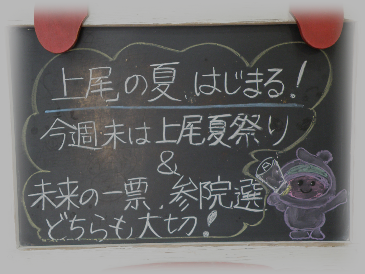 上尾の夏、はじまる!
今週末は上尾夏祭り
&
未来の一票、参院選
どちらも大切!